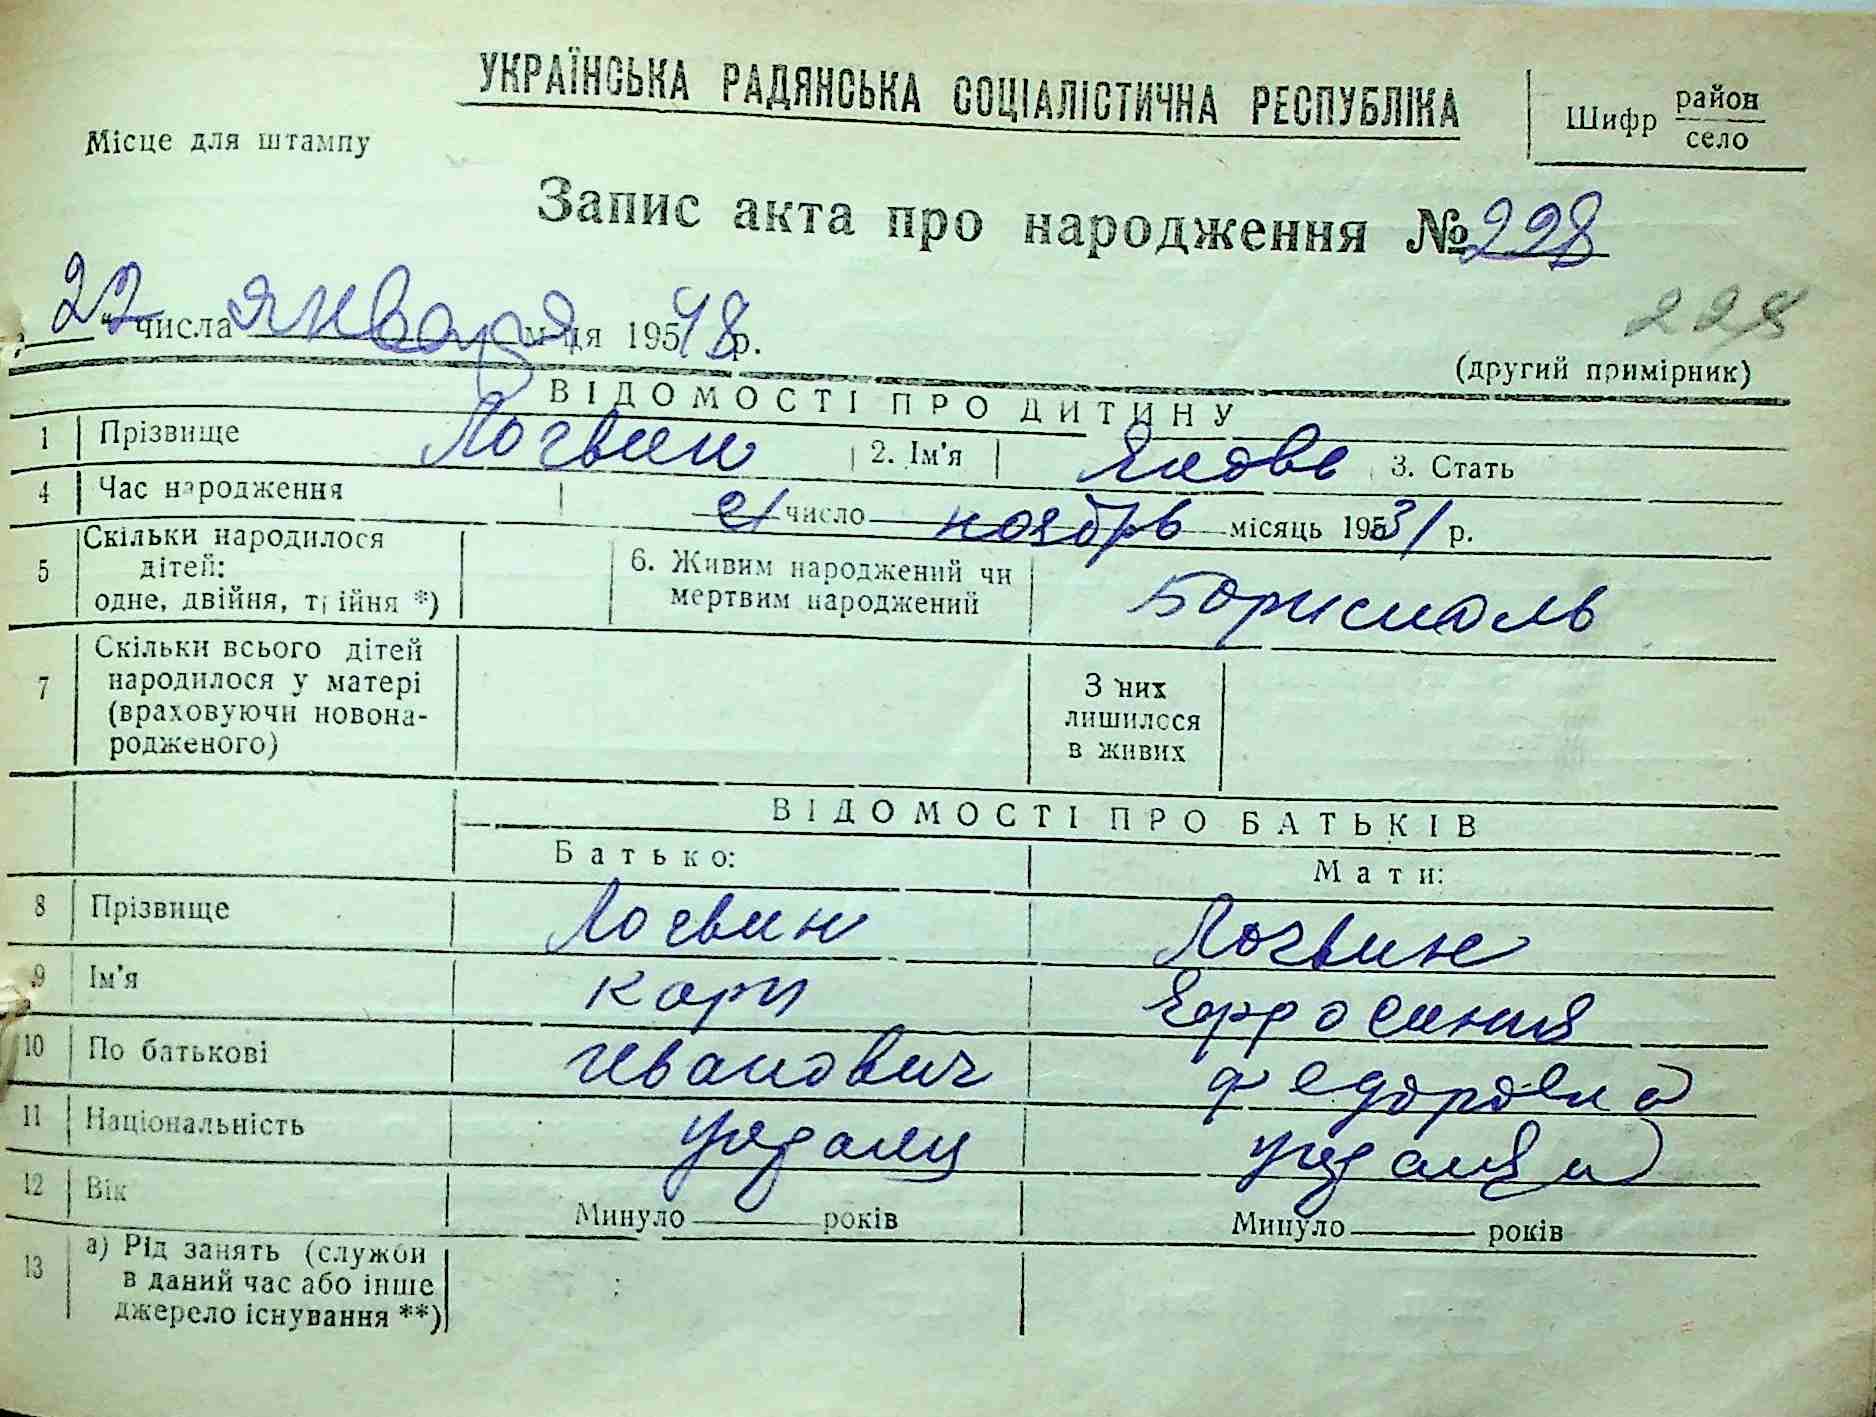 УКРАЇНСЬКА РАДЯНСЬКА СОЦІАЛІСТИЧНА РЕСПУБЛІКА
Шифр район
село
Місце для штампу
Запис акта про народження № 228
22 числа января м-ця 195 48 р.
228
(другий примірник)
ВІДОМОСТІ ПРО ДИТИНУ
1 Прізвище Логвин 2. Ім'я Яковь 3. Стать
4 Час народження 21 число ноябрь місяць 195 31 р.
5 Скільки народилося дітей: одне, двійня, трійня *)
6. Живим народжений чи мертвим народжений Борисполь
7 Скільки всього дітей народилося у матері (враховуючи новонародженого)
З них лишилося в живих
ВІДОМОСТІ ПРО БАТЬКІВ
Батько: Мати:
8 Прізвище Логвин Логвин
9 Ім'я Карп Ефросиния
10 По батькові Иванович Федоровна
11 Національність
12 Вік Минуло років Минуло років
13 а) Рід занять (служби в даний час або інше джерело існування **)